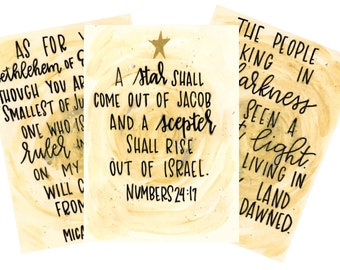 AS FOR
BETHLEHEM OF
THOUGH YOU AR
SMALLEST OF JU
ONE WHO IS
RULER IN
ON MY
WILL C
FROM
MICA
A STAR SHALL
COME OUT OF JACOB
AND A SCEPTER
SHALL RISE
OUT OF ISRAEL.
NUMBERS 24:17
THE PEOPLE
KING IN
DARKNESS
SEEN A
LIGHT.
LIVING IN
LAND
DAWNED.